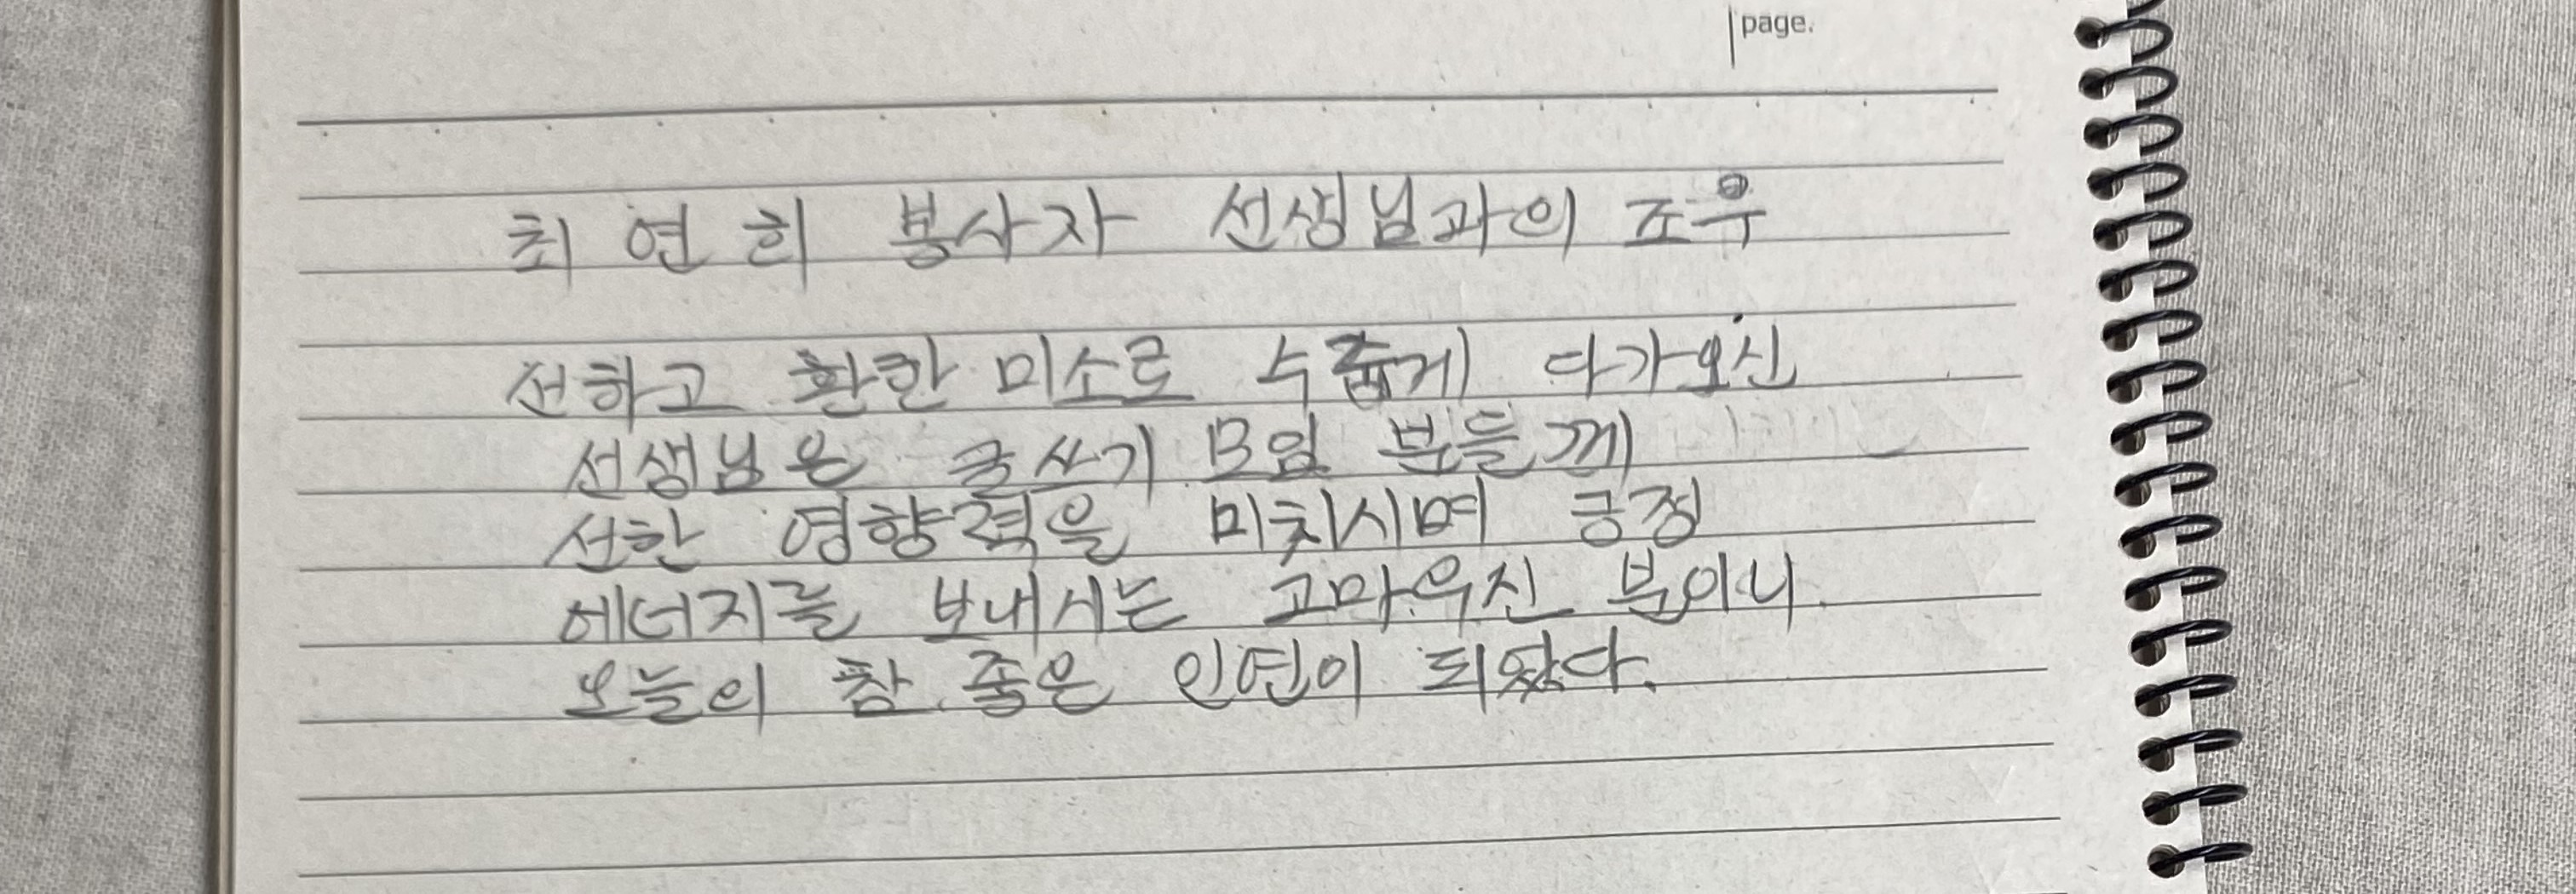 page.
최연희 봉사자 선생님과의 조우
선하고 환한 미소로 수줍게 다가오신
선생님은 글쓰기 모임 분들께
선한 영향력을 미치시며 긍정
에너지를 보내시는 고마우신 분이니
오늘의 참 좋은 인연이 되왔다.